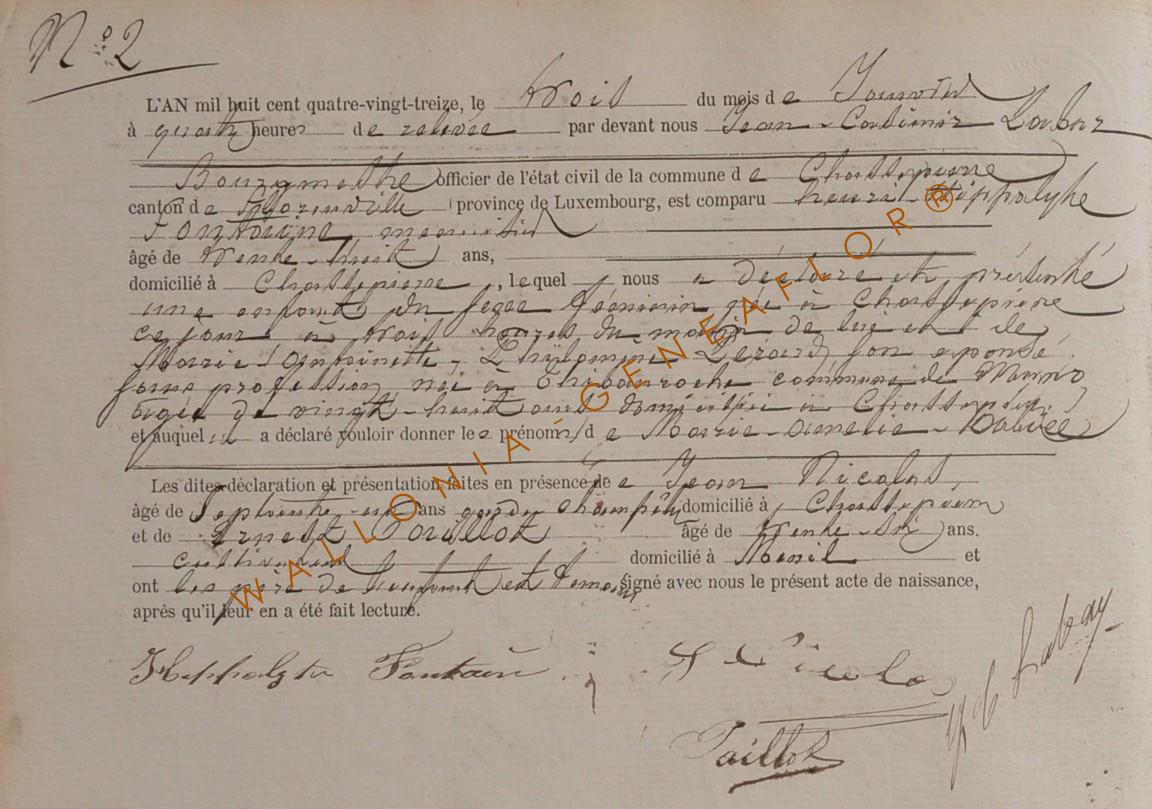 N° 2
L'AN mil huit cent quatre-vingt-treize, le trois du mois de Janvier
à quatre heures de relevée par devant nous Jean-Casimir Labar
officier de l'état civil de la commune de Chassepierre
canton de Florenville province de Luxembourg, est comparu henri Hippolythe
Fontaine, menuisier
âgé de trente-huit ans,
domicilié à Chassepierre, lequel nous a déclaré et présenté
une enfant du sexe feminin née à Chassepierre
ce jour à trois heures du matin de lui et de
Marie Antoinette, Philomène Lezard son épouse
sans profession née à commune de Muno
agée de vingt-huit ans domiciliée à Chassepierre
et auquel il a déclaré vouloir donner les prénoms de Marie
Les dites déclaration et présentation faites en présence de Jean Nicolas
âgé de Septante-un ans garde champêtre domicilié à Chassepierre
et de Ernest âgé de trente-six ans.
cultivateur domicilié à et
ont les père de l'enfant et temoins signé avec nous le présent acte de naissance,
après qu'il leur en a été fait lecture.
Hippolyte Fontaine J Nicolas
WALLONIA-GENEAFLOR®